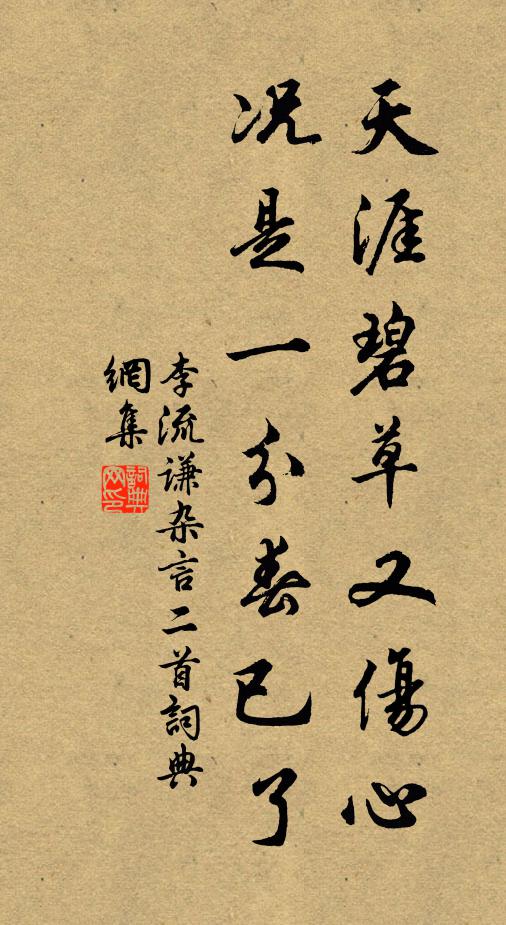 天涯碧草又傷心
况是一分春已了
李流谦杂言二首詞典
網集
詞典
网印